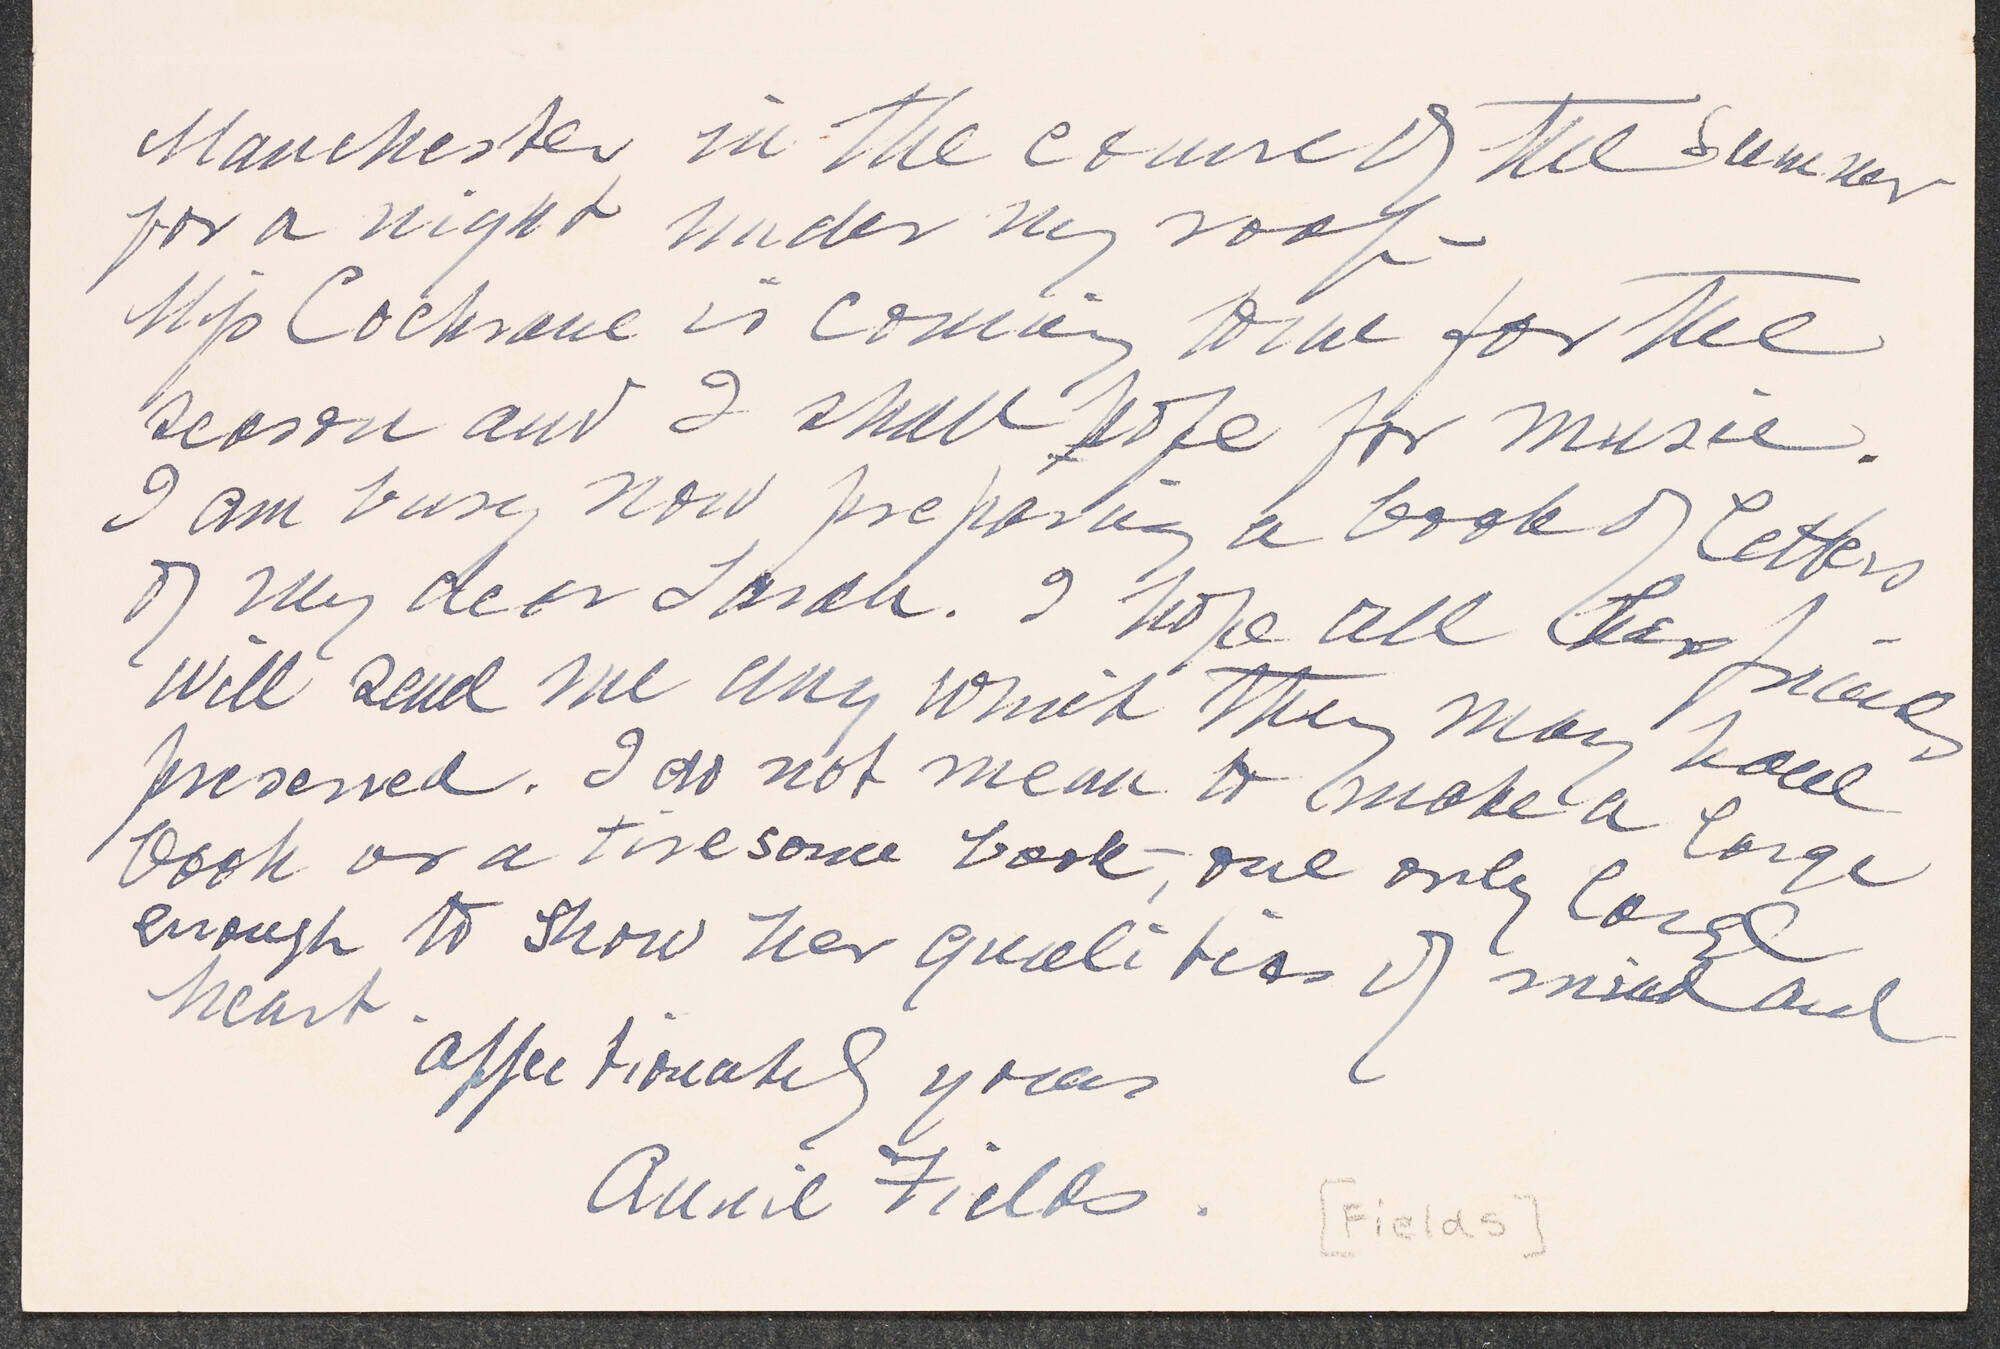 Manchester in the course of the Summer
for a night under my roof –
Miss Cochrane is coming to me for the
season and I shall hope for music.
I am busy now preparing a book of letters
of my dear Sarah. I hope all her friends
will send me any which they may have
preserved. I do not mean to make a large
book or a tiresome book –, one only large
enough to show her qualities of mind and
heart.
affectionately yours
Annie Fields.
[Fields]